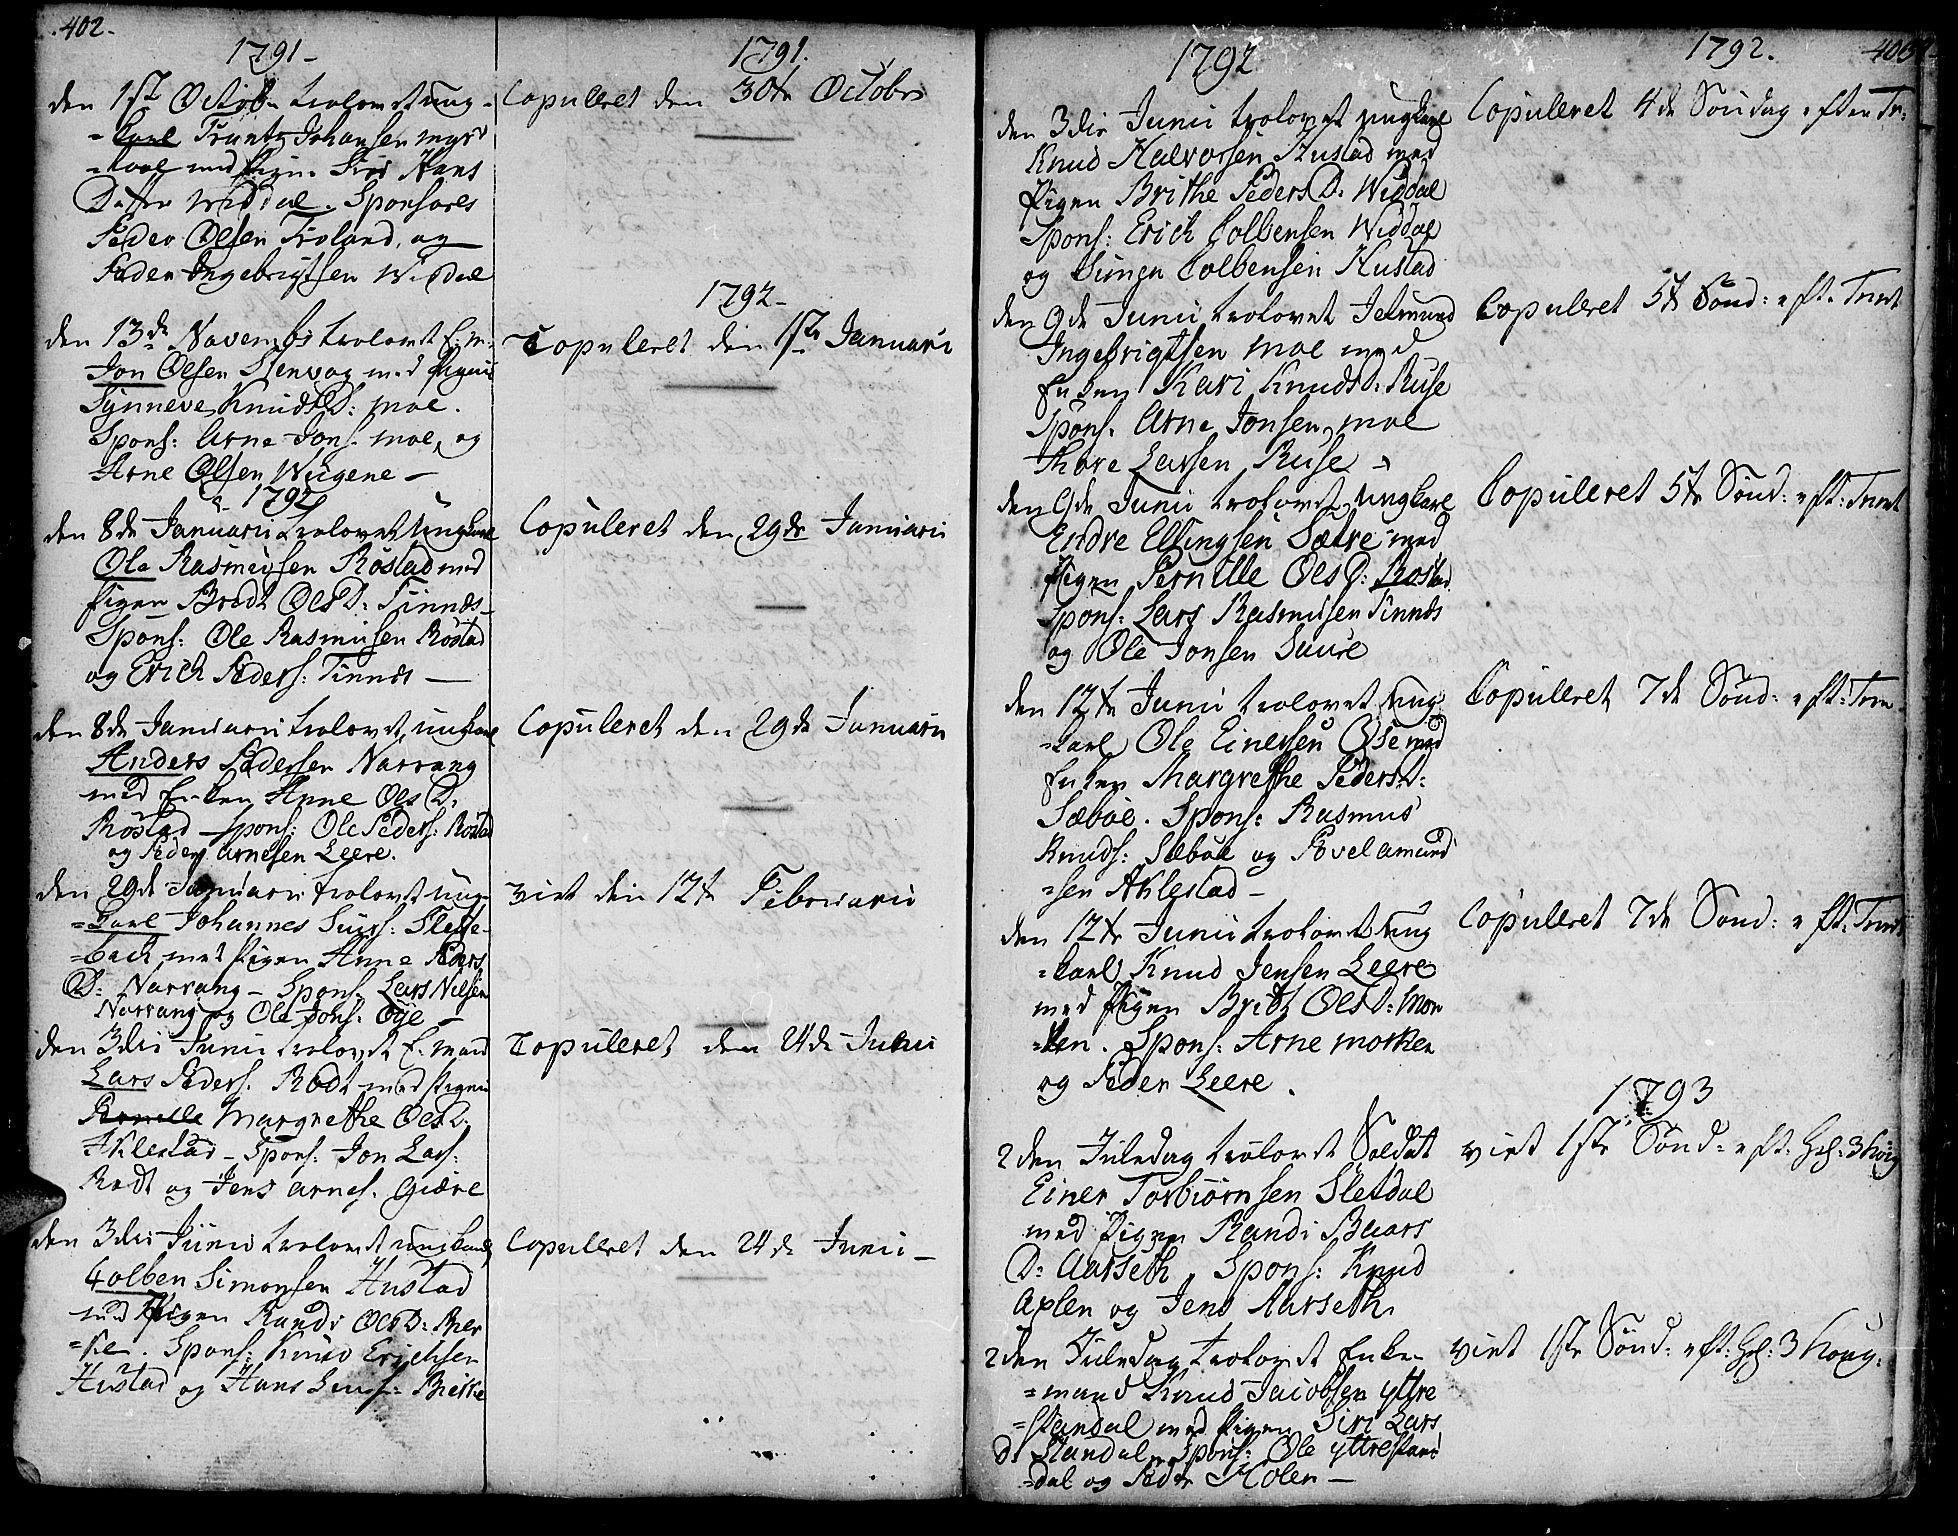 402.
1791
den 1ste Octob. trolovet ung-
=karl Frants Johansen myr
med Pigen Hans
Datter Widdal. Sponsores
Peder Olsen Froland, og
Peder Ingebrigtsen Widdal
den 13de Novembr trolovet E: m:
Jon Olsen Stenvog med Pigen
Synneve Knuds D: moe.
Spons: Arne Jons. moe, og
Arne Olsen Wügene
1792
den 8de Januarii trolovet ungkarl
Ole Rasmusen Röstad med
Pigen Bredt Ols D: Tinnds
Spons: Ole Rasmusen Röstad
og Erich Peders: Tinnds
den 8de Januarii trolovet ungkarl
Anders Pedersen Narrang
med Enken Anne Ols D.
Röstad Spons: Ole Peders: Röstad
og Peder Arnesen Leere.
den 29de Januarii trolovet ung-
=karl Johannes Siurs: Slette-
=back med Pigen Anne Peders
D: Narrang - Spons. Lars Nilsen
Narrang og Ole Jons: Öye
den 3die Junii trolovet E: mand
Lars Peders. Rödt med Pigen
Pernille Margrethe Ols D.
Aklestad - Spons: Jon Lars:
Rödt og Jens Arnes. Giære
den 3die Junii trolovet ungkarl
Colben Simonsen Hustad
med Pigen Randi Ols D: Bier
=ke. Spons: Knud Erichsen
Hustad og Hans
1791.
Copuleret den 30te Octobr
1792
Copuleret den 1ste Januarii
Copuleret den 29de Januarii
Copuleret den 29de Januarii
viet den 12te Februarii
Copuleret den 24de Junii
Copulleret den 24de Junii
1792
den 3die Junii trolovet ungkarl
Knud Halvorsen Hustad med
Pigen Brithe Peders D: Widdal
Spons: Erich Colbensen Widdal
og Simen Colbensen Hustad
den 9de Junii trolovet Jetmund
Ingebrigtsen moe med
Enken Kari Knuds D: Ruse
Spons. Arne Jonsen moe
Thore Larsen Ruse
den 9de Junii trolovet ungkarl
Endre Ellingsen Sætre med
Pigen Pernille Ols D: Rostad
Spons: Lars Rasmusen Tinnds
og Ole Jonsen Saure
den 12te Junii trolovet ung
=karl Ole Einersen Ose med
Enken Margrethe Peders D:
Sæböe. Spons: Rasmus
Knuds: Sæböe og Povel amund
=sen Aklestad
den 12te Junii trolovet ung
=karl Knud Jensen Leere
med Pigen Bredt Ols D: Mor
=ken. Spons: Arne morken
og Peder Leere.
2den Juledag trolovet Soldat
Einer Torbiörnsen Sletdal
med Pigen Randi Baars
D: Aarseth, Spons: Knud
Axlen og Jens Aarseth
2den Juledag trolovet Enke-
=mand Knud Jacobsen yttre
=standal med Pigen Siri Lars
D: Standal, Spons: Ole yttrestan
=dal og Peder Holen
1792.
Copuleret 4de Söndag efter Tr:
Copuleret 5te Sönd: eft. Trinit
Copuleret 5te Sönd: eft: Trinit
Copuleret 7de Sönd: eft: Trin
Copuleret 7de Sönd: eft: Trinit
1793
viet 1ste Sönd: eft: Hel: 3 kong
viet 1ste Sönd: eft: Hel: 3 kong.